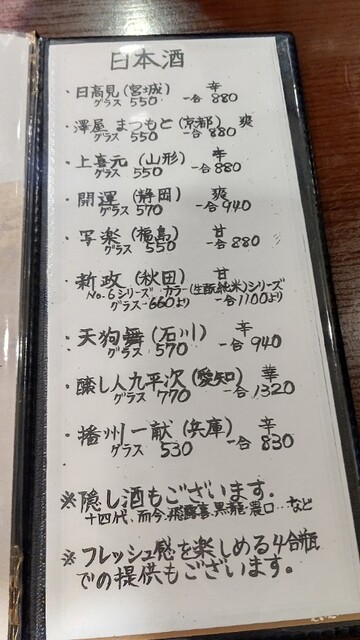 日本酒
・日高見(宮城) 辛
グラス 550 一合 880
・澤屋 まつもと(京都) 爽
グラス 550 一合 880
・上喜元(山形) 辛
グラス 550 一合 880
・開運(静岡) 爽
グラス 570 一合 940
・写楽(福島) 甘
グラス 550 一合 880
・新政(秋田) 甘
No.6シリーズ カラー(生酛純米)シリーズ
グラス 660より 一合1100より
・天狗舞(石川) 辛
グラス 570 一合 940
・醸し人九平次(愛知) 華
グラス 770 一合 1320
・播州一献(兵庫) 辛
グラス 530 一合 830
※隠し酒もございます。
十四代、而今、飛露喜、黒龍、農口…など
※フレッシュ感を楽しめる4合瓶
での提供もございます。